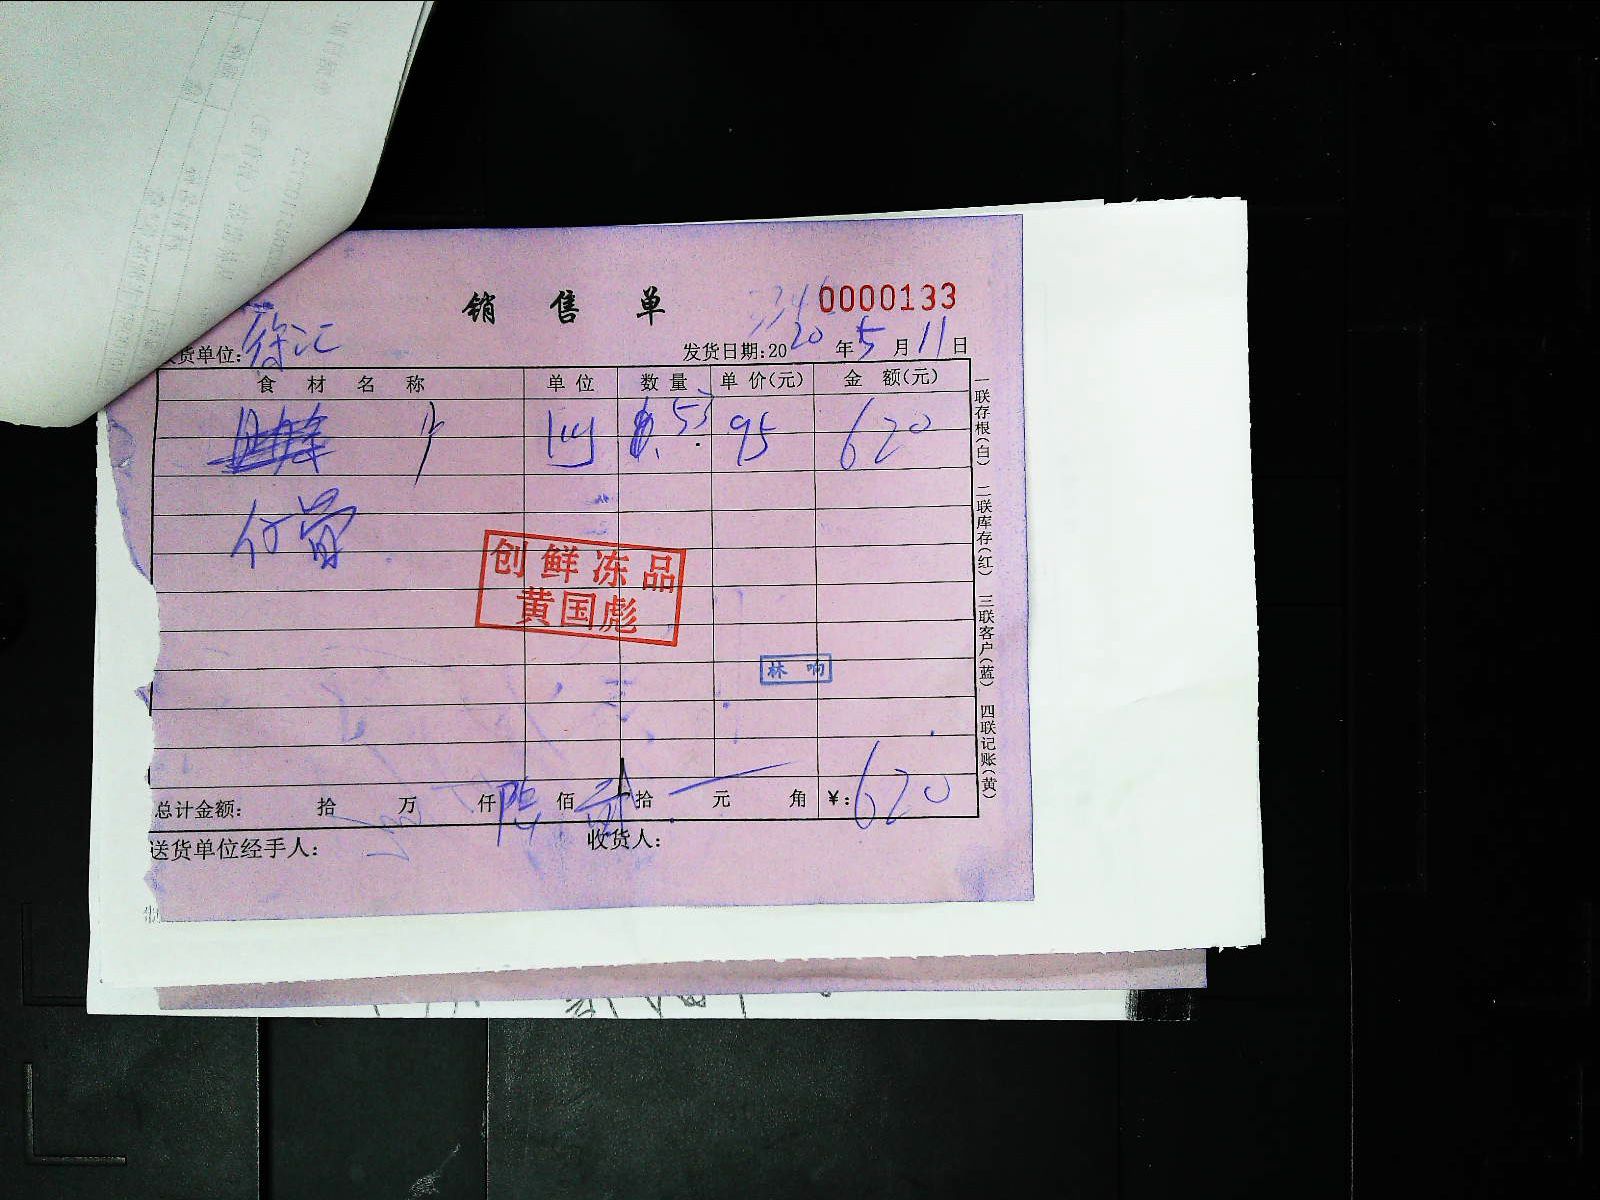 销售单 0000133
货单位: 徐汇 发货日期:2020年5月11日
食材名称 单位 数量 单价(元) 金额(元)
kg 6.53 95 620
付
创鲜冻品
黄国彪
林响
总计金额: 拾 万 仟 佰 拾 元 角 ¥: 620
送货单位经手人: 收货人:
一联存根(白) 二联库存(红) 三联客户(蓝) 四联记账(黄)